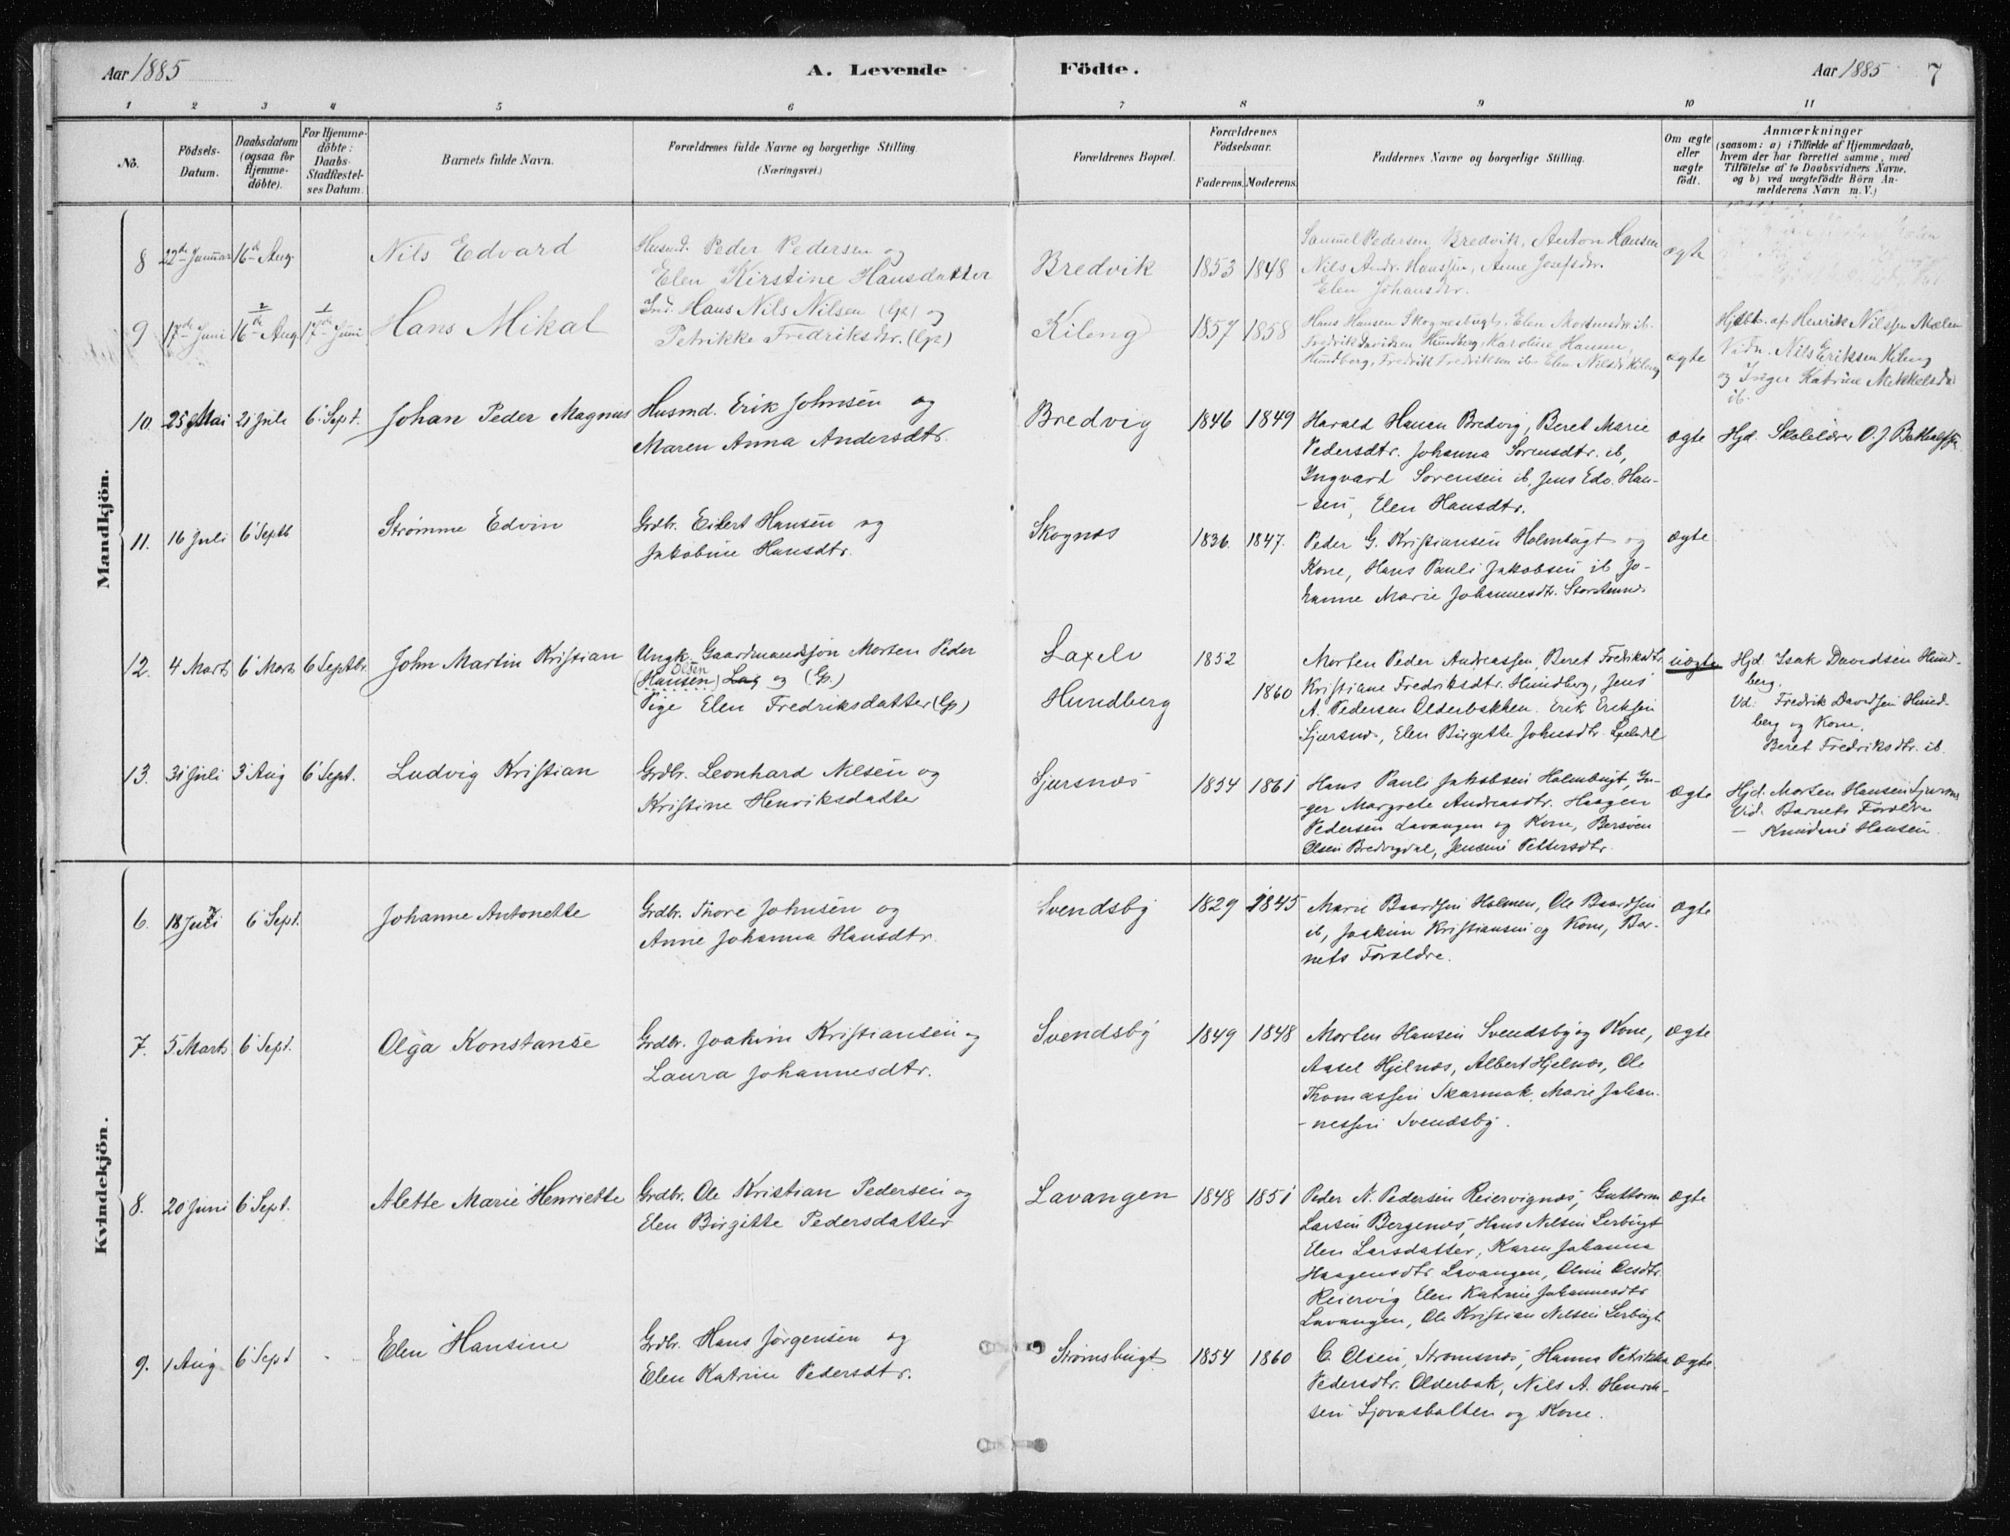 Aar 1885
A. Levende Födte.
Aar 1885 7
1 2 3 4 5 6 7 8 9 10 11
No.
Födsels-
Datum.
Daabsdatum
(ogsaa for
Hjemme-
döbte).
For Hjemme-
döbte:
Daabs-
Stadfæstel-
ses Datum.
Barnets fulde Navn.
Forældrenes fulde Navne og borgerlige Stilling.
(Næringsvei.)
Forældrenes Bopæl.
Forældrenes
Födselsaar.
Faderens. Moderens.
Faddernes Navne og borgerlige Stilling.
Om ægte
eller
uægte
födt.
Anmærkninger
(saasom: a) i Tilfælde af Hjemmedaab,
hvem der har forrettet samme, med
Tilföielse af to Daabsvidners Navne,
og b) ved uægtefödte Börn An-
melderens Navn m. V.)
Mandkjön.
8 22de Januar 16de Aug. Nils Edvard
Husmd. Peder Pedersen og
Elen Kirstine Hansdatter
Bredvik 1853 1848
Samuel Pedersen Bredvik, Anton Hansen
Nils Andr. Hanssen, Anne Josefsdr.
Elen Johansdr.
ægte
9 17de Juni 16de Aug. 17de Juni Hans Mikal
Ind. Hans Nils Nilsen (lp) og
Petrikke Fredriksdr. (lp)
Kileng 1857 1858
Hans Hansen Skognesbugt, Elen Mortensdr ib.
Fredrik Davidsen Hundberg, Karoline Hansen,
Hundberg, Fredrik Fredriksen ib. Elen Nilsdr Kileng
ægte
Hjdbt. af Henrik Nilssen Mælen
Vidn. Nils Eriksen Kileng
og Inger Katrine Mikkelsdr
ib.
10. 25 Mai 21 Juli 6' Sept. Johan Peder Magnus
Husmd. Erik Johnsen og
Maren Anna Andersdtr.
Bredvig 1846 1849
Harald Hansen Bredvig, Beret Marie
Pedersdtr. Johanna Sørensdtr. ib,
Ingvard Sørensen ib, Jens Edv. Han-
-sen, Elen Hansdtr.
ægte
Hjd. Skolelærer O. J.
11. 16 Juli 6' Septb Strømme Edvin
Grdbr. Eilert Hansen og
Jakobine Hansdtr.
Skognæs 1836. 1847.
Peder G. Kristiansen Holmbugt og
Kone, Hans Pauli Jakobsen ib Jo-
hanne Marie Johannesdtr. Storstennæs
ægte
12. 4 Marts 6' Marts 6 Septbr. John Martin Kristian
Ungk. Gaardmandssøn Morten Peder
(Hansen) Olsen og (lp.)
Pige Elen Fredriksdatter (lp)
Laxelv 1852
Hundberg 1860
Morten Peder Andreassen, Beret Fredriksdtr
Kristiane Fredriksdtr. Hundberg, Jens
A. Pedersen Olderbakken. Erik Eriksen
Sjursnæs, Elen Birgette Johnsdtr.
uægte
Hjd. Isak Davidsen Hund-
berg.
Vd: Fredrik Davidsen Hund-
berg og Kone.
Beret Fredriksdtr. ib.
13. 31 Juli 3' Aug 6' Sept. Ludvig Kristian
Grdbr. Leonhard Nilsen og
Kristine Henriksdatter
Sjursnæs 1854 1861
Hans Pauli Jakobsen Holmbugt, In-
-ger Margrete Andreasdtr. Haagen
Pedersen Lavangen og Kone, Bersven
Olsen Bredvigdal, Jensine Pettersdtr.
ægte
Hjd. Morten Hansen Sjursnæs
Vid. Barnets Forældre
— Hansen.
Kvindekjön.
6. 18 Juli 6' Sept. Johanne Antonette
Grdbr. Thore Johnsen og
Anne Johanna Hansdtr.
Svendsby 1829 1845
Marie Baardsen Holmen, Ole Baardsen
ib, Joakim Kristiansen og Kone, Bar-
nets Forældre.
ægte
7. 5 Marts 6' Sept. Olga Konstanse
Grdbr. Joakim Kristiansen og
Laura Johannesdtr.
Svendsby 1849 1848
Morten Hansen Svendsby og Kone,
Axsel Hjelnæs, Albert Hjelnæs, Ole
Thomassen Skarmok, Marie Johan-
-nessen Svendsby.
ægte
8. 20 Juni 6' Sept. Alette Marie Henriette
Grdbr. Ole Kristian Pedersen og
Elen Birgitte Pedersdatter
Lavangen 1848 1851
Peder N. Pedersen Reiervignæs, Guttorm
Larsen Bergenæs, Hans Nilsen Lerbugt
Elen Larsdatter, Karen Johanna
Haagensdtr Lavangen, Oline Olsdtr.
Reiervig Elen Katrine Johannesdtr
Lavangen, Ole Kristian Nilsen Lerbugt
ægte
9. 1 Aug 6' Sept Elen Hansine
Grdbr. Hans Jørgensen og
Elen Katrine Pedersdtr.
Strømsbugt 1854 1860
C. Olsen, Strømsnæs, Hanna Petrikka
Pedersdtr. Olderbak, Nils A. Henrik-
sen Sjøvasbotten og Kone.
ægte